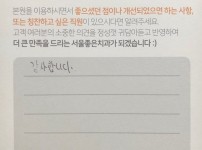 본원을 이용하시면서 좋으셨던 점이나 개선되었으면 하는 사항,
또는 칭찬하고 싶은 직원이 있으시다면 알려주세요.
고객 여러분의 소중한 의견을 정성껏 귀담아듣고 반영하여
더 큰 만족을 드리는 서울좋은치과가 되겠습니다 :)
감사합니다.